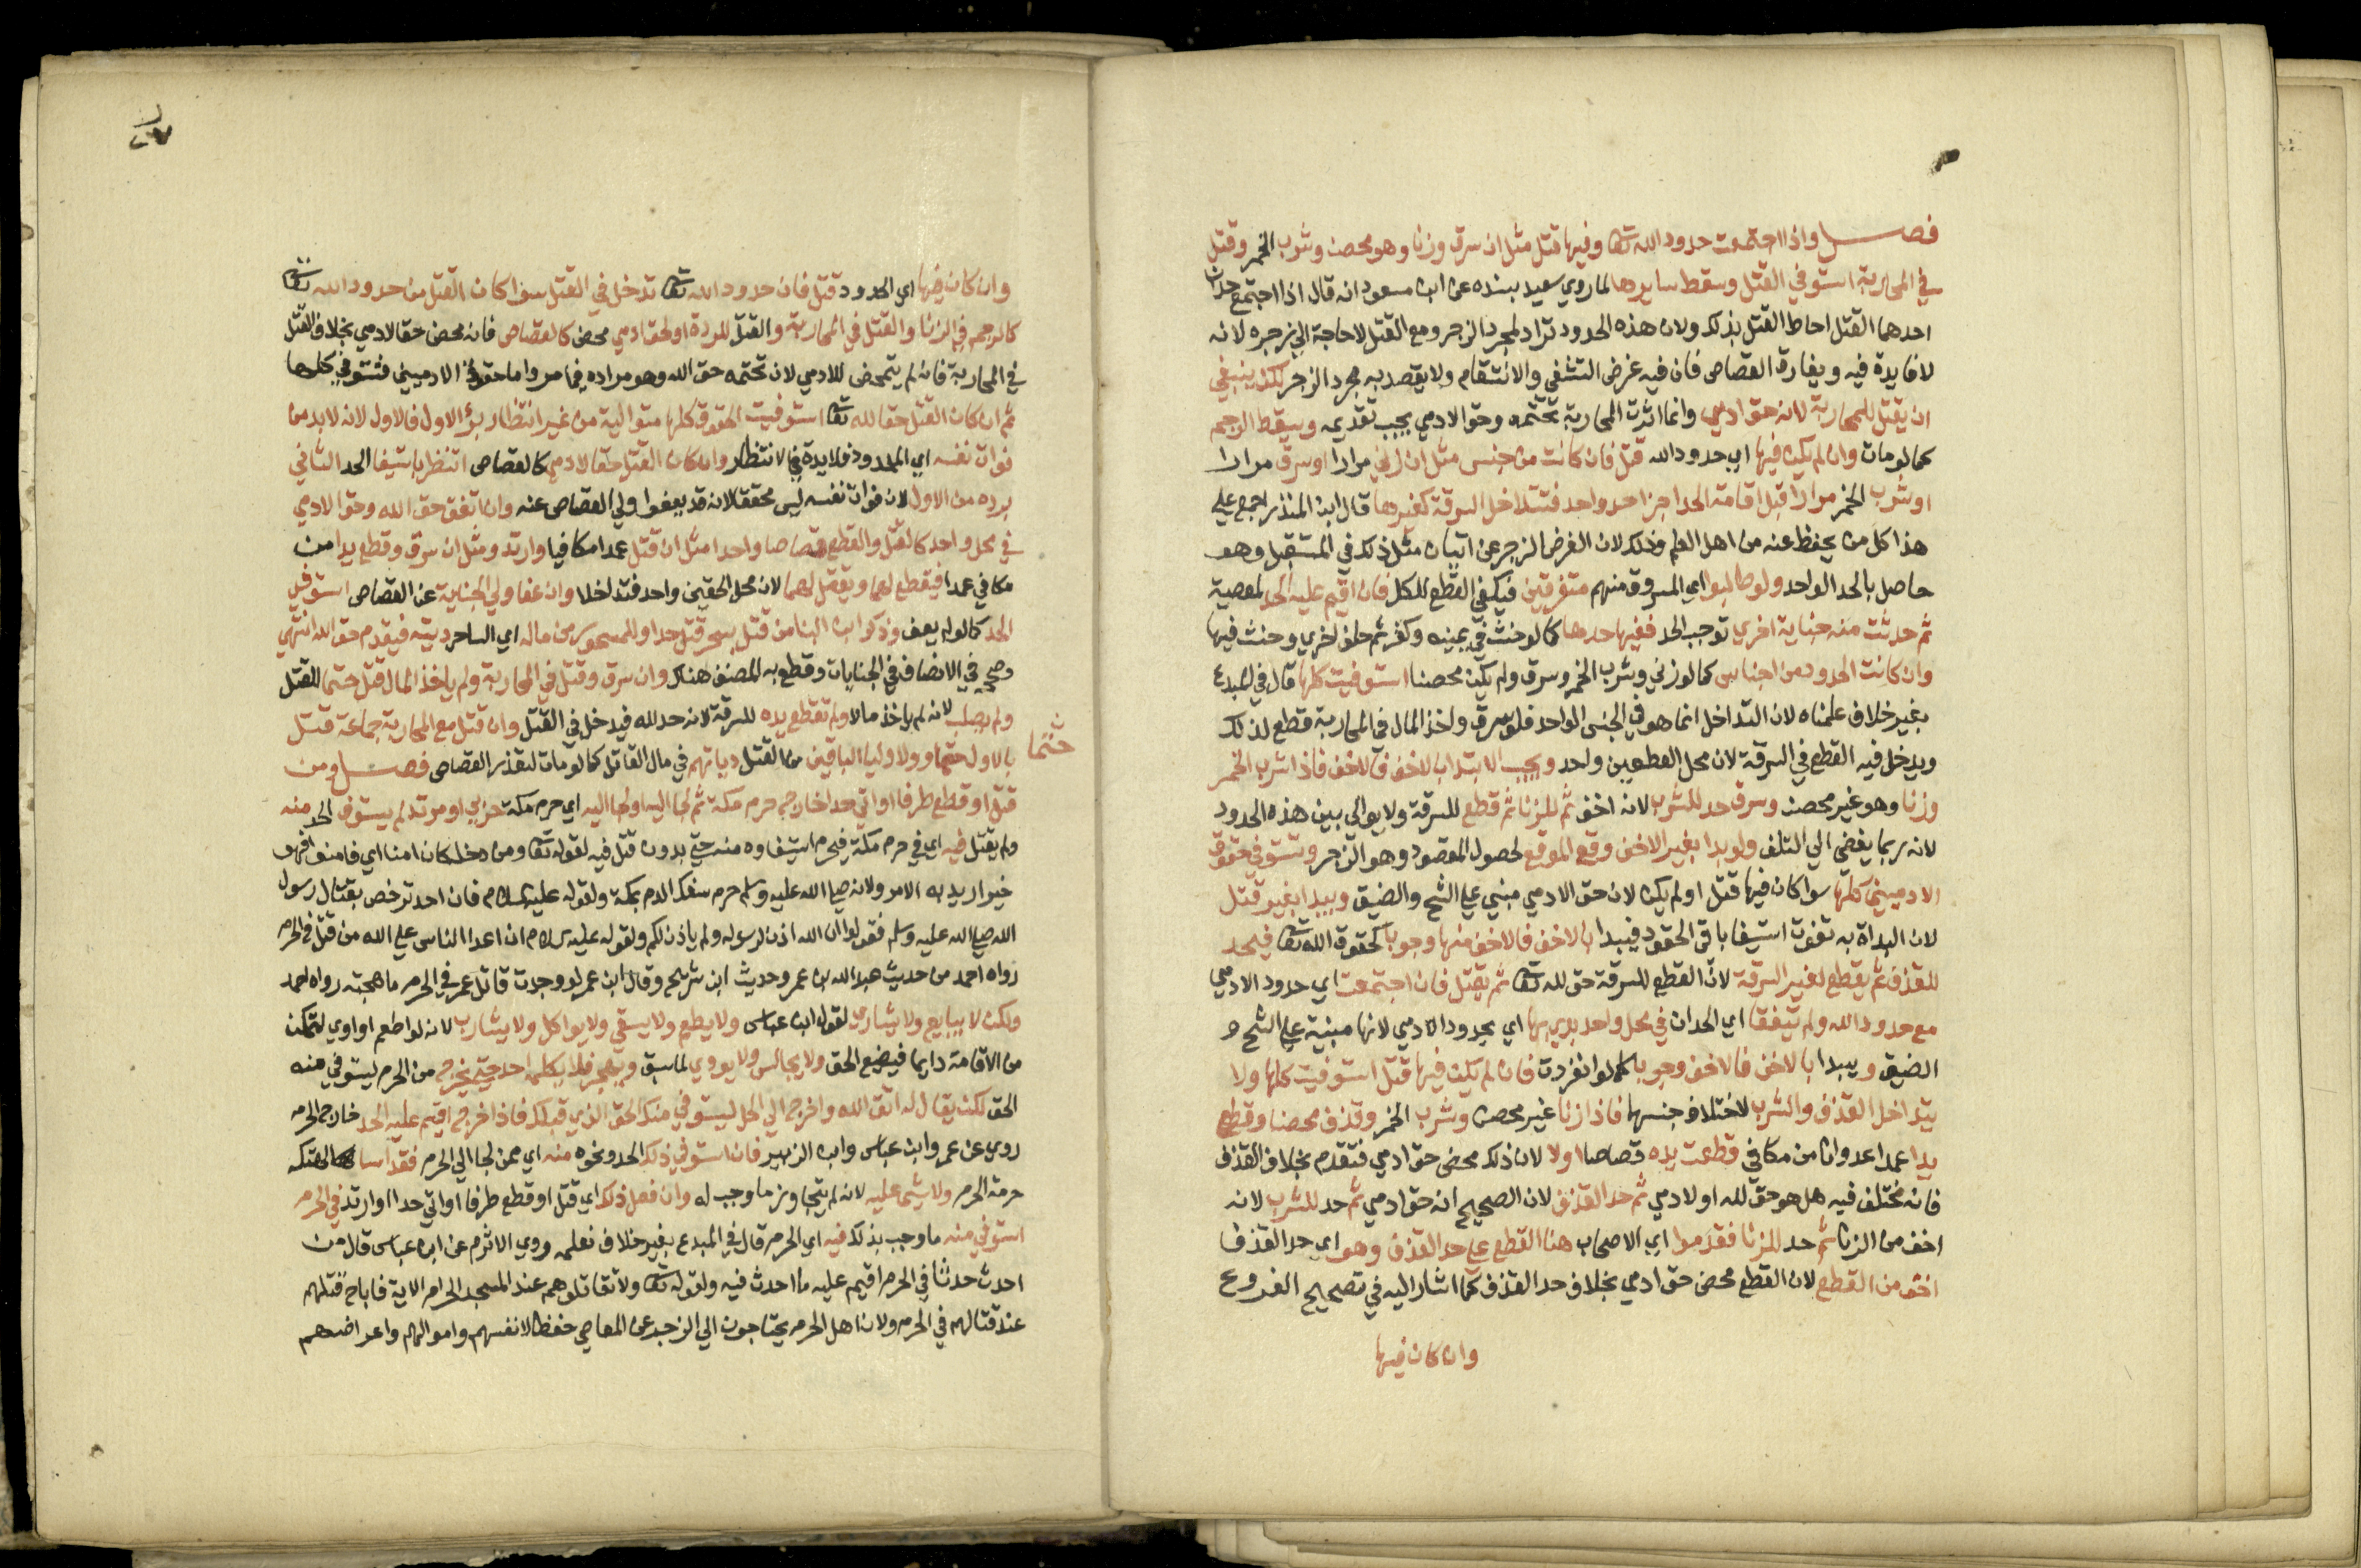 فصل واذا اجتمعت حدود الله تعا وفيها قتل مثل ان سرق وزنا وهو محصن وشرب الخمر وقتل
في المحاربة استوفي القتل وسقط سايرها لما روي سعيد بسنده عن ابن مسعود انه قال اذا اجتمع حدان
احدهما القتل احاط القتل بذلك ولان هذه الحدود تراد لمجرد الزجر ومع القتل لا حاجة الي زجره لانه
لا فايدة فيه ويفارق القصاص فان فيه غرض التشفي والانتقام ولا يقصد به مجرد الزجر لكن ينبغي
ان يقتل للمحاربة لانه حق ادمي وانما اثرت المحاربة تحتمه وحق الادمي يجب تقديمه ويسقط الرجم
كما لو مات وان لم يكن فيها اي حدود الله قتل فان كانت من جنس مثل ان زني مرارا او سرق مرارا
او شرب الخمر مرارا قبل اقامة الحد اجزا حد واحد فتتداخل السرقة كغيرها قال ابن المنذر اجمع علي
هذا كل من يحفظ عنه من اهل العلم وذلك لان الغرض الزجر عن اتيان مثل ذلك في المستقبل وهو
حاصل بالحد الواحد ولو طالبوا اي المسروق منهم متفرقين فيكفي القطع للكل فان اقيم عليه الحد لمعصية
ثم حدثت منه جناية اخري توجب الحد ففيها حدها كما لو حنث في يمينه وكفر ثم حلف اخري وحنث فيها
وان كانت الحدود من اجناس كما لو زني وشرب الخمر وسرق ولم يكن محصنا استوفيت كلها قال في المبدع
بغير خلاف علمناه لان التداخل انما هو في الجنس الواحد فلو سرق واخذ المال في المحاربة قطع لذلك
ويدخل فيه القطع في السرقة لان محل القطعين واحد ويجب الابتدا بالاخف فالاخف فاذا شرب الخمر
وزنا وهو غير محصن وسرق حد للشرب لانه اخف ثم للزنا ثم قطع للسرقة ولا يوالي بين هذه الحدود
لانه ربما يفضي الي التلف ولو بدا بغير الاخف وقع الموقع لحصول المقصود وهو الزجر وتستوفي حقوق
الادميين كلها سوا كان فيها قتل او لم يكن لان حق الادمي مبني علي الشح والضيق ويبدا بغير قتل
لان البداة به تفوت استيفا باقي الحقود فيبدا بالاخف فالاخف منها وجوبا كحقوق الله تعا فيحد
للقذف ثم يقطع لغير السرقة لان القطع للسرقة حق لله تعا ثم يقتل فان اجتمعت اي حدود الادمي
مع حدود الله ولم تتفقا اي الحدان في محل واحد بدي بها اي بحدود الادمي لانها مبنية علي الشح و
الضيق ويبدا بالاخف فالاخف وجوبا كما لو انفردت فان لم يكن فيها قتل استوفيت كلها ولا
يتداخل القذف والشرب لاختلاف جنسها فاذا زنا غير محصن وشرب الخمر وقذف محصنا وقطع
يدا عمدا عدوانا من مكافي قطعت يده قصاصا اولا لان ذلك محض حق ادمي فتقدم بخلاف القذف
فانه مختلف فيه هل هو حق لله او لادمي ثم حد القذف لان الصحيح انه حق ادمي ثم حد للشرب لانه
اخف من الزنا ثم حد للزنا فقدموا اي الاصحاب هنا القطع علي حد القذف وهو اي حد القذف
اخف من القطع لان القطع محض حق ادمي بخلاف حد القذف كما اشار اليه في تصحيح الفروع
وان كان فيها
وان كان فيها اي الحدود قتل فان حدود الله تعا تدخل في القتل سوا كان القتل من حدود الله تعا
كالرجم في الزنا والقتل في المحاربة والقتل للردة او لحق ادمي محض كالقصاص فانه محض حق الادمي بخلاف القتل
في المحاربة فانه لم يتمحض للادمي لان تحتمه حق الله وهو مراده فيما مر واما حقوق الادميين فتستوفي كلها
ثم ان كان القتل حقا لله تعا استوفيت الحقوق كلها متوالية من غير انتظار برؤ الاول فالاول لانه لابد من
فوات نفسه اي المحدود فلا يدة في الانتظار وان كان القتل حقا لادمي كالقصاص انتظر باستيفا الحد الثاني
برده من الاول لان فوات نفسه ليس محققا لانه قد يعفوا ولي القصاص عنه وان اتفق حق الله وحق الادمي
في محل واحد كالقتل والقطع قصاصا واحدا مثل ان قتل عمدا مكافيا وارتد ومثل ان سرق وقطع يدا من
مكافي عمدا فيقطع لهما ويقتل لهما لان محل الحقين واحد فتداخلا وان عفا ولي الجناية عن القصاص استوفي
الحد كما لو لم يعف وذكر ابن البنا من قتل بسحر قتل حدا وللمسحور من ماله اي الساحر ديته فيقدم حق الله انتهي
وصححه في الانصاف في الجنايات وقطع به المصنف هناك وان سرق وقتل في المحاربة ولم ياخذ المال قتل حتما للقتل
ولم يصلب لانه لم ياخذ مالا ولم تقطع يده للسرقة لانه حد لله فيدخل في القتل وان قتل مع المحاربة جماعة قتل
حتما
بالاول حتما ولاوليا الباقين من القتل دياتهم في مال القاتل كما لو مات لتعذر القصاص فصل ومن
قتل او قطع طرفا او اتي حدا خارج حرم مكة ثم لجا اليه او لجا اليه اي حرم مكة حربي او مرتد لم يستوف الحد منه
ولم يقتل فيه اي في حرم مكة فيحرم استيفاوه منه حتي بدون قتل فيه لقوله تعا ومن دخله كان امنا اي فامنوه فهو
خبر اريد به الامر ولانه صلي الله عليه وسلم حرم سفك الدم بمكة ولقوله عليه السلام فان احد ترخص بقتال رسول
الله صلي الله عليه وسلم فقولوا ان الله اذن لرسوله ولم ياذن لكم ولقوله عليه السلام ان اعدا الناس علي الله من قتل في الحرم
رواه احمد من حديث عبد الله بن عمر وحديث ابن شريح وقال ابن عمر لو وجدت قاتل عمر في الحرم ما هجته رواه احمد
ولكن لا يبايع ولا يشاري لقوله ابن عباس ولا يطعم ولا يسقي ولا يواكل ولا يشارب لانه لو اطعم او اوي لتمكن
من الاقامة دايما فيضيع الحق ولا يجالس ولا يووي لما سبق ويهجر فلا يكلمه احد حتي يخرج من الحرم ليستوفي منه
الحق لكن يقال له اتق الله واخرج الي الحل ليستوفي منك الحق الذي قبلك فاذا خرج اقيم عليه الحد خارج الحرم
روي عن عمر وابن عباس وابن الزبير فان استوفي ذلك الحد ونحوه منه اي ممن لجا الي الحرم فقد اسا لهتكه
حرمة الحرم ولا شي عليه لانه لم يتجاوز ما وجب له وان فعل ذلك اي قتل او قطع طرفا او اتي حدا او ارتد في الحرم
استوفي منه ما وجب بذلك فيه اي الحرم قال في المبدع بغير خلاف نعلمه وروي الاثرم عن ابن عباس قال من
احدث حدثا في الحرم اقيم عليه ما احدث فيه ولقوله تعا ولا تقاتلوهم عند المسجد الحرام الاية فاباح قتلهم
عند قتالهم في الحرم ولان اهل الحرم يحتاجون الي الزجر عن المعاصي حفظا لانفسهم واموالهم واعراضهم